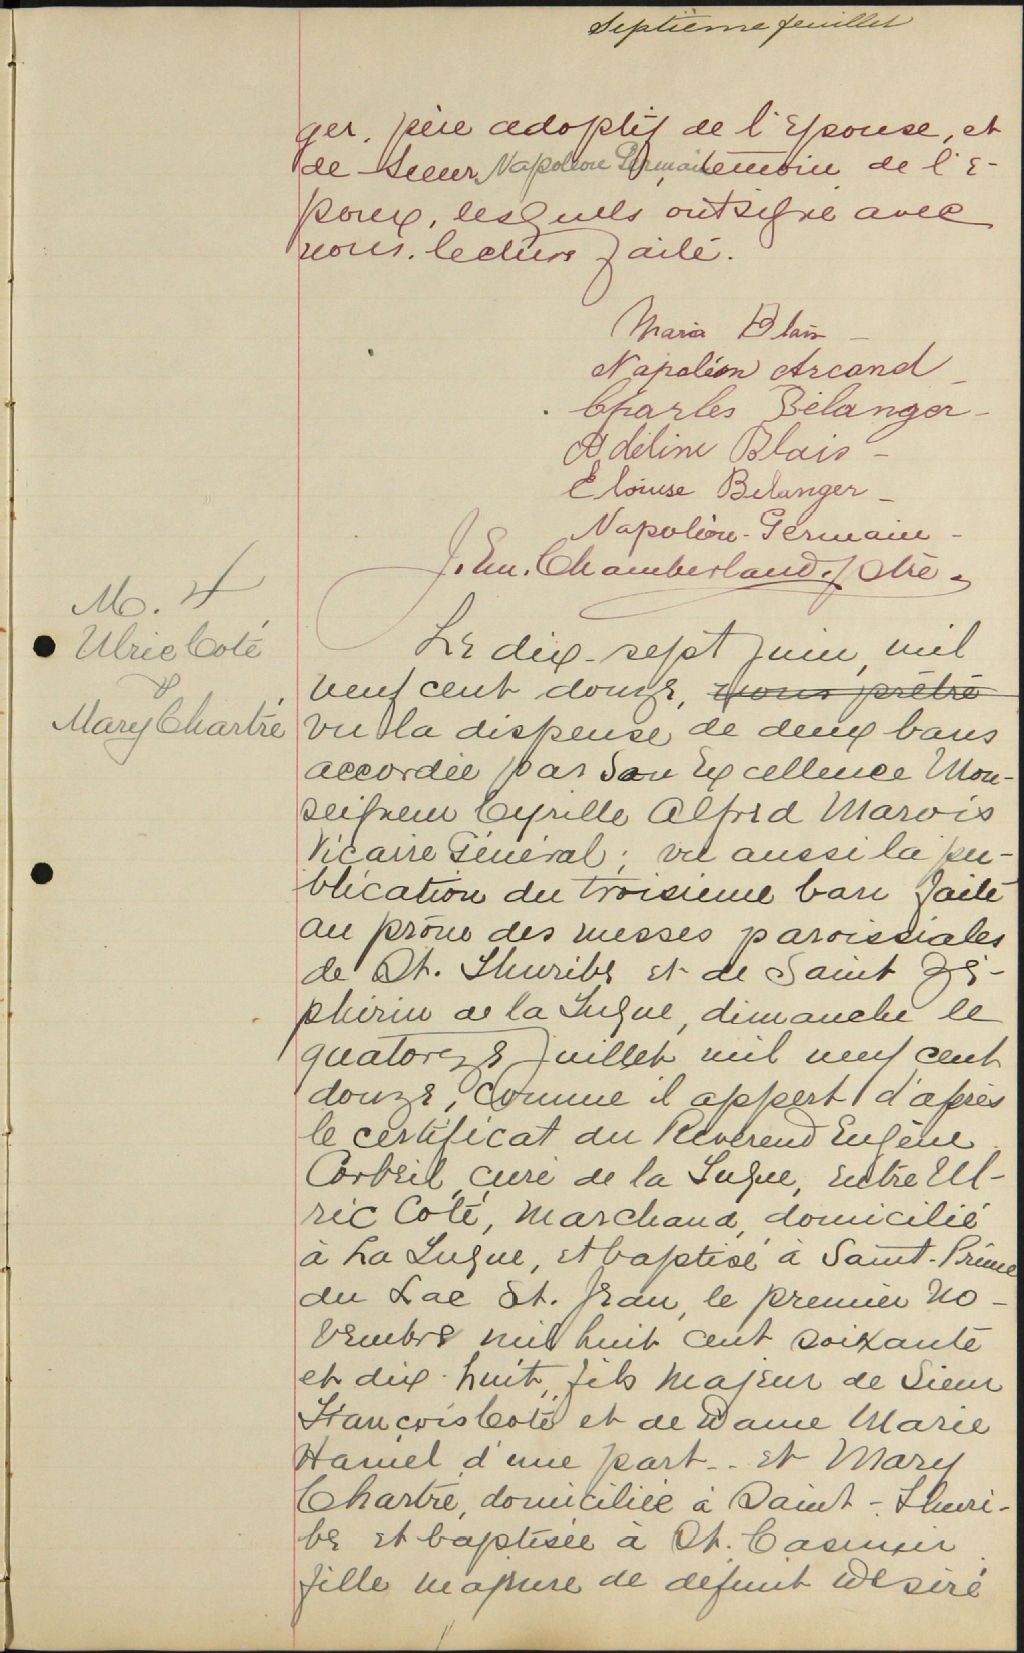 Septième feuillet
ger, père adoptif de l'Epouse, et
de Sieur Napoléon Germain témoin de l'E-
poux, lesquels ont signé avec
nous. lecture faite.
Maria Blais -
Napoléon Arcand -
Charles Bélanger -
Adéline Blais -
Eloïse Belanger -
Napoléon Germain -
J. Em. Chamberland, ptre.
M. 4
Ulric Coté
&
Mary Chartré
Le dix-sept juin, mil
neuf cent douze, nous prêtre
vu la dispense de deux bans
accordée par Son Excellence Mon-
seigneur Cyrille Alfred Marois
Vicaire Général; vu aussi la pu-
blication du troisieme ban faite
au prône des messes paroissiales
de St. Thuribe et de Saint Zé-
phirin de la Tuque, dimanche le
quatorze juillet mil neuf cent
douze, comme il appert d'après
le certificat du Révérend Eugène
Corbeil, curé de la Tuque, entre Ul-
ric Coté, marchand, domicilié
à La Tuque, et baptisé à Saint-Prime
du Lac St. Jean, le premier No-
vembre mil huit cent soixante
et dix-huit, fils majeur de Sieur
François Coté et de Dame Marie
Hamel d'une part.. et Mary
Chartré, domiciliée à Saint-Thuri-
be et baptisée à St. Casimir
fille majeure de défunt Désiré